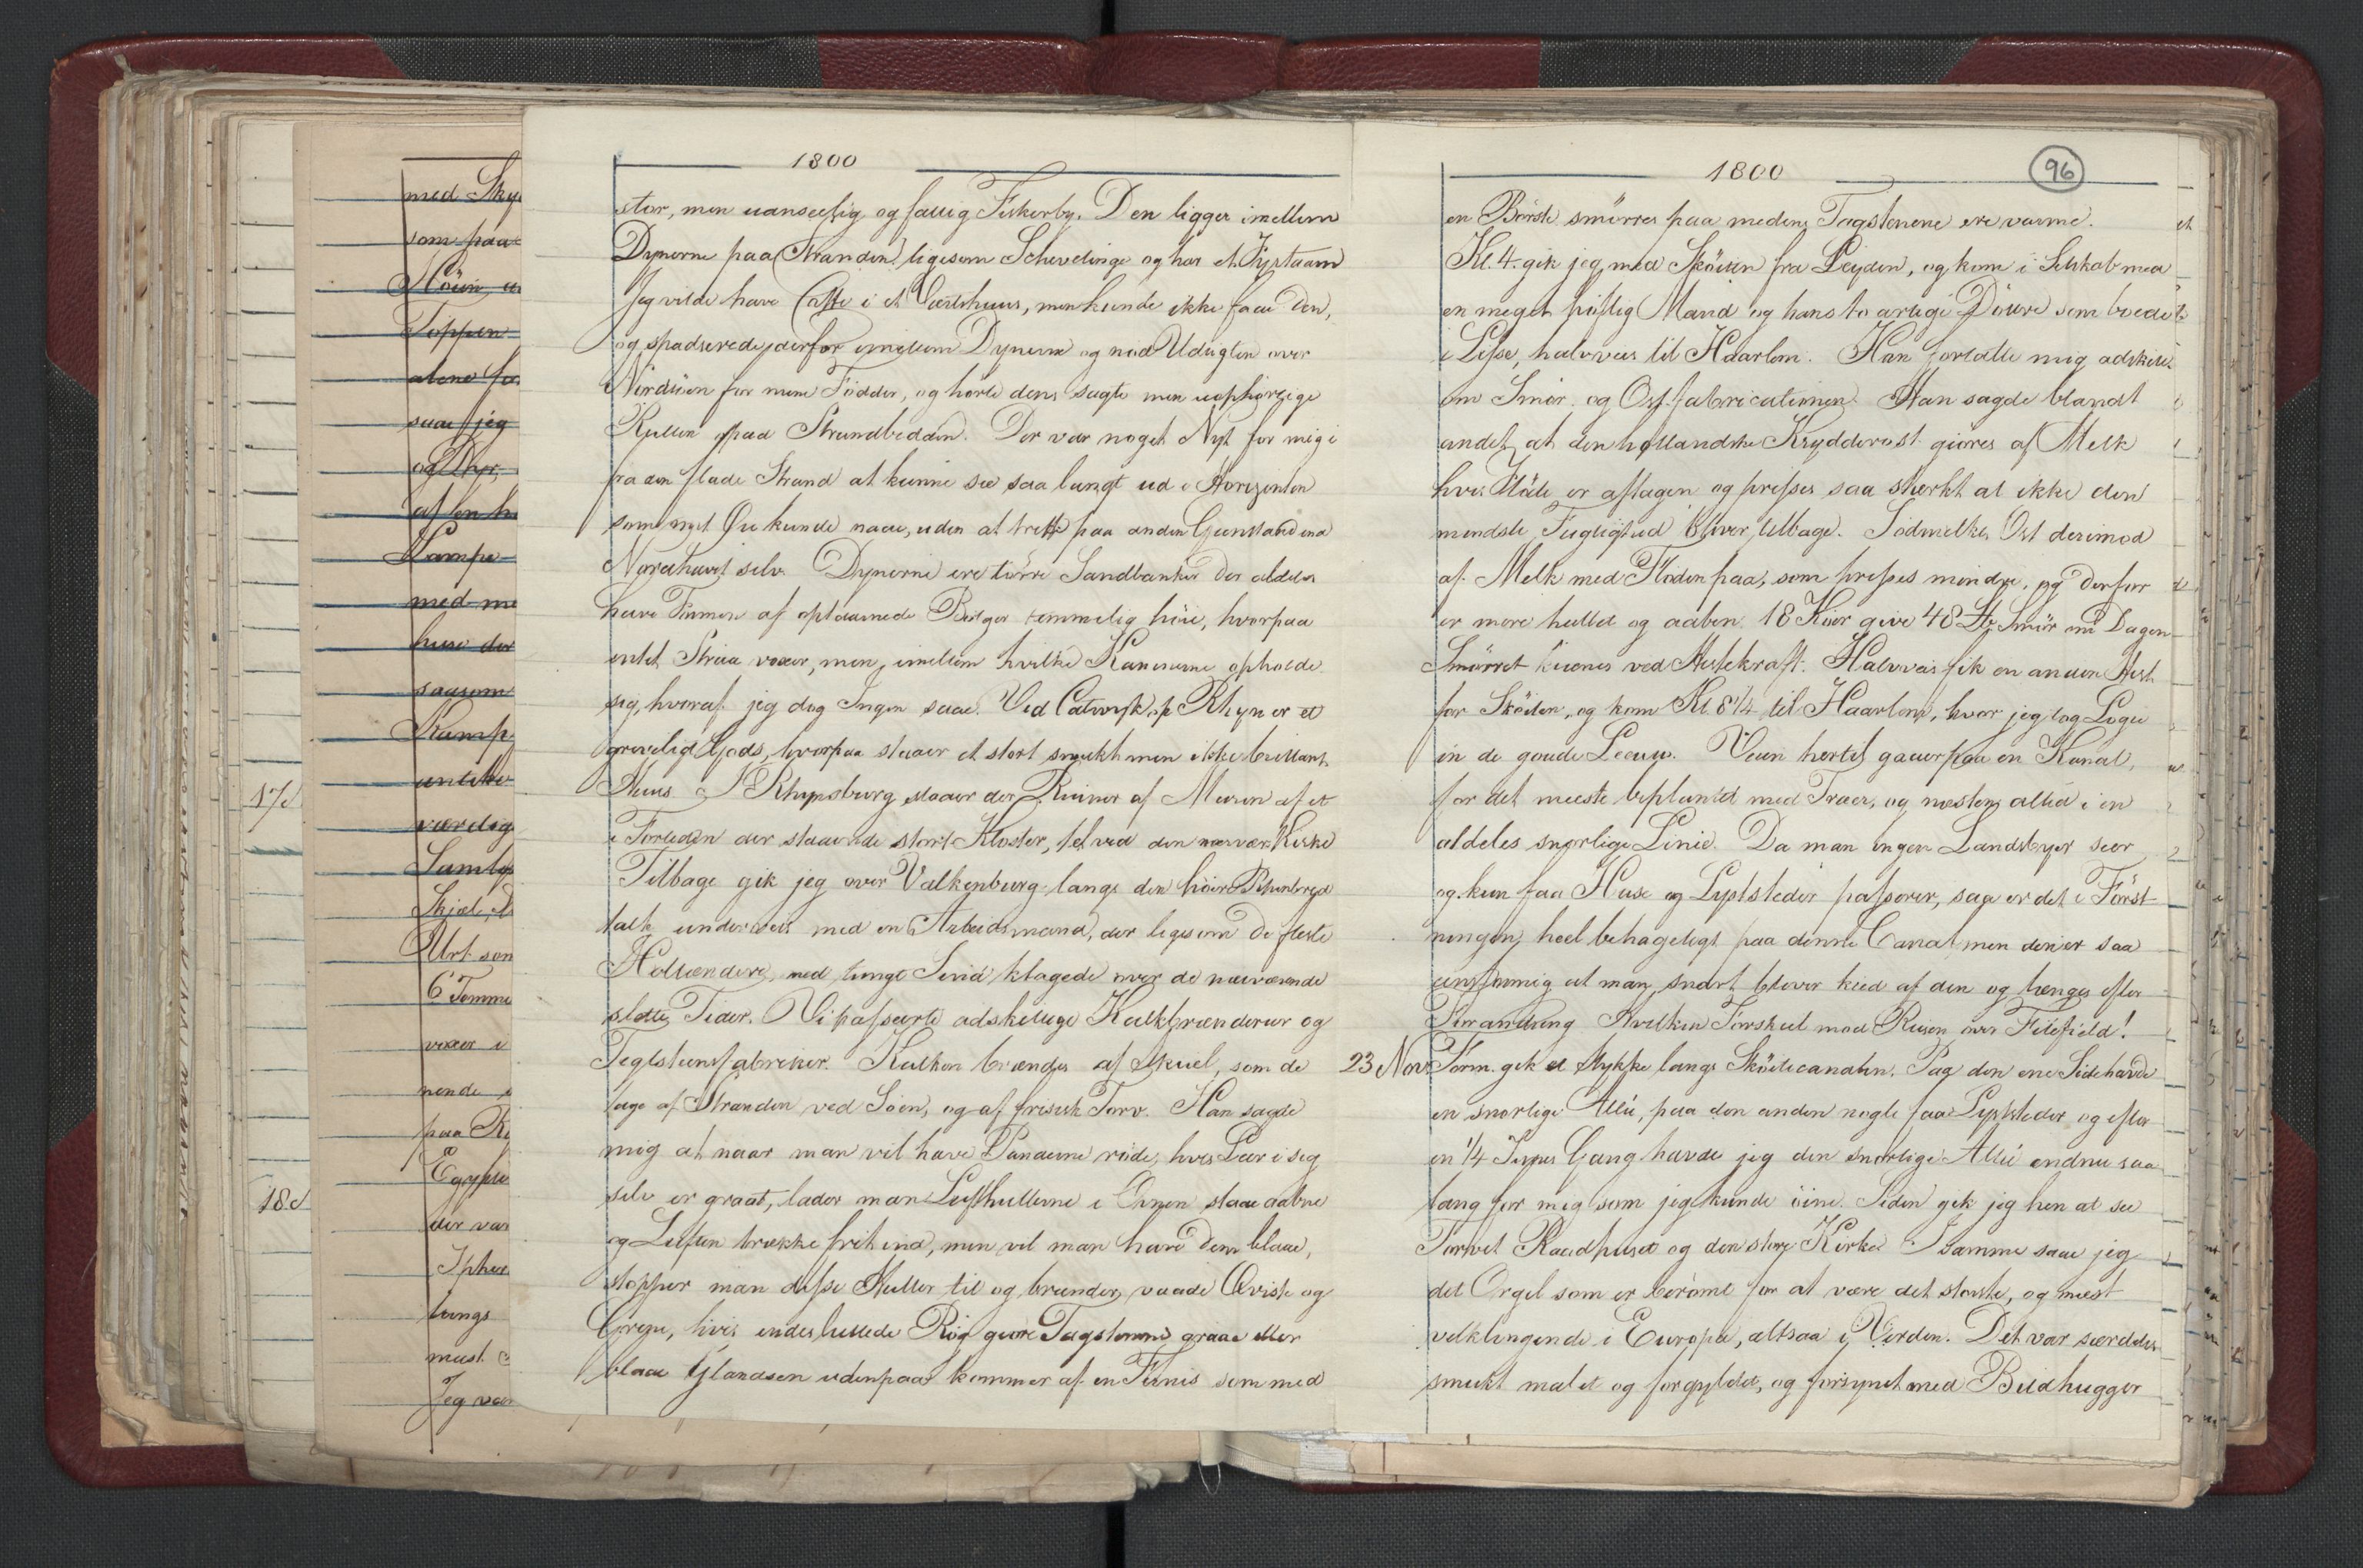 1800
stor, men uanseelig og fattig Fiskerby. Den ligger imellem
Dynerne paa Stranden ligesom Schevelinge og har et Fyrtaarn
Jeg vilde have Caffe i et Værtshuus, men kunde ikke faae den,
og spadserede derfor imellem Dynerne og nød Udsigten over
Nordsöen for mine Födder, og hørte dens sagte men uophörlige
Rullen paa Strandbredden. Der var noget Nyt for mig i
fra den flade Strand at kunne see saa langt ud i Horizonten
som mit Öie kunde naae, uden at træffe paa anden Gienstand end
Nordhavet selv. Dynerne ere tørre Sandbanker der aldeles
have Formen af optaarnede Bølger temmelig höie, hvorpaa
intet Straa voxer, men imellem hvilke Kaninerne opholde
sig, hvoraf jeg dog Ingen saae. Ved Catwijk op Rhyn er et
greveligt Gods, hvorpaa staaer et stort smukt men ikke brillant
Huus I Rhynsburg staaer der Ruiner af Muren af et
i Fortiden der staaende stort Kloster, tet ved den nærvær. Kirke
Tilbage gik jeg over Valkenburg langs den höire Rhinbred
talte underveis med en Arbeidsmand, der ligesom de fleste
Hollændere, med tungt Sind klagede over de nærværende
slette Tider. Vi passerte adskellige Kalkbrænderier og
Teglsteensfabriker. Kalken brændes af Skiæl, som de
tage af Stranden ved Söen, og af frisisk Torv. Han sagde
mig at naar man vil have Panderne röde, hvis Leer i sig
selv er graat, lader man Lufthullerne i Ovnen staae aabne
og Luften trække frit ind, men vil man have dem blaae,
stopper man disse Huller til og brænder vaade Qviste og
Grene, hvis indesluttede Røg giøre Tagstenene graae eller
blaae Glandsen udenpaa kommer af en Fernis som med
1800
96
en Börste smörres paa medens Tagstenene ere varme.
Kl. 4 gik jeg med Sköiten fra Leyden, og kom i Selskab med
en meget höflig Mand og hans to artige Döttre som boede
i Lisse, halvveis til Haarlem. Han fortalte mig adskilligt
om Smör og Ost-fabricationen. Han sagde blandt
andet, at den hollandske Krydderost giøres af Melk
hvis Flöde er aftagen og presses saa stærkt at ikke den
mindste Fugtighed bliver tilbage. Södmelks Ost derimod
af Melk med Flöden paa, som presses mindre, og derfor
er mere hullet og aaben. 18 Kiör give 48 Lb Smör om Dagen
Smörret kiernes ved Hestekraft. Halvveis fik en anden Hest
for Sköiten, og kom Kl. 8 1/4 til Haarlem, hvor jeg tog Logie
in de goude Leeuw. Veien hertil gaaer paa en Kanal,
for det meeste beplantet med Træer, og næsten altid i en
aldeles snorlige Linie. Da man ingen Landsbyer seer
og kun faa Huse og Lyststeder passerer, saa er det i Först-
ningen heel behageligt paa denne Canal men den er saa
eensformig at man snart bliver kied af den og længes efter
Forandring Hvilken Forskiel mod Reisen over Filefield!
23 Nov Form. gik et Stykke langs Sköitecanalen. Paa den ene Side havde
en snorlige Allé, paa den anden nogle faa Lyststeder og efter
en 1/4 Times Gang havde jeg den snorlige Allé endnu saa
lang for mig som jeg kunde öine. Siden gik jeg hen at see
Torvet Raadhuset og den store Kirke I samme saae jeg
det Orgel som er berömt for at være det störste, og mest
velklingende i Europa, altsaa i Verden. Det var særdeles
smukt malet og forgyldt, og forsynet med Bildhugger
med Sky
som paa
Toppen
alene
saae jeg
og Dyr,
Lampe
med
huse der
saasom
Kamp
antike
værdig
Samling
Urt som
6 Tomme
voxer i
nende
paa
Egypte
der var
Ipher
langs
mest
Jeg var
17d
18d